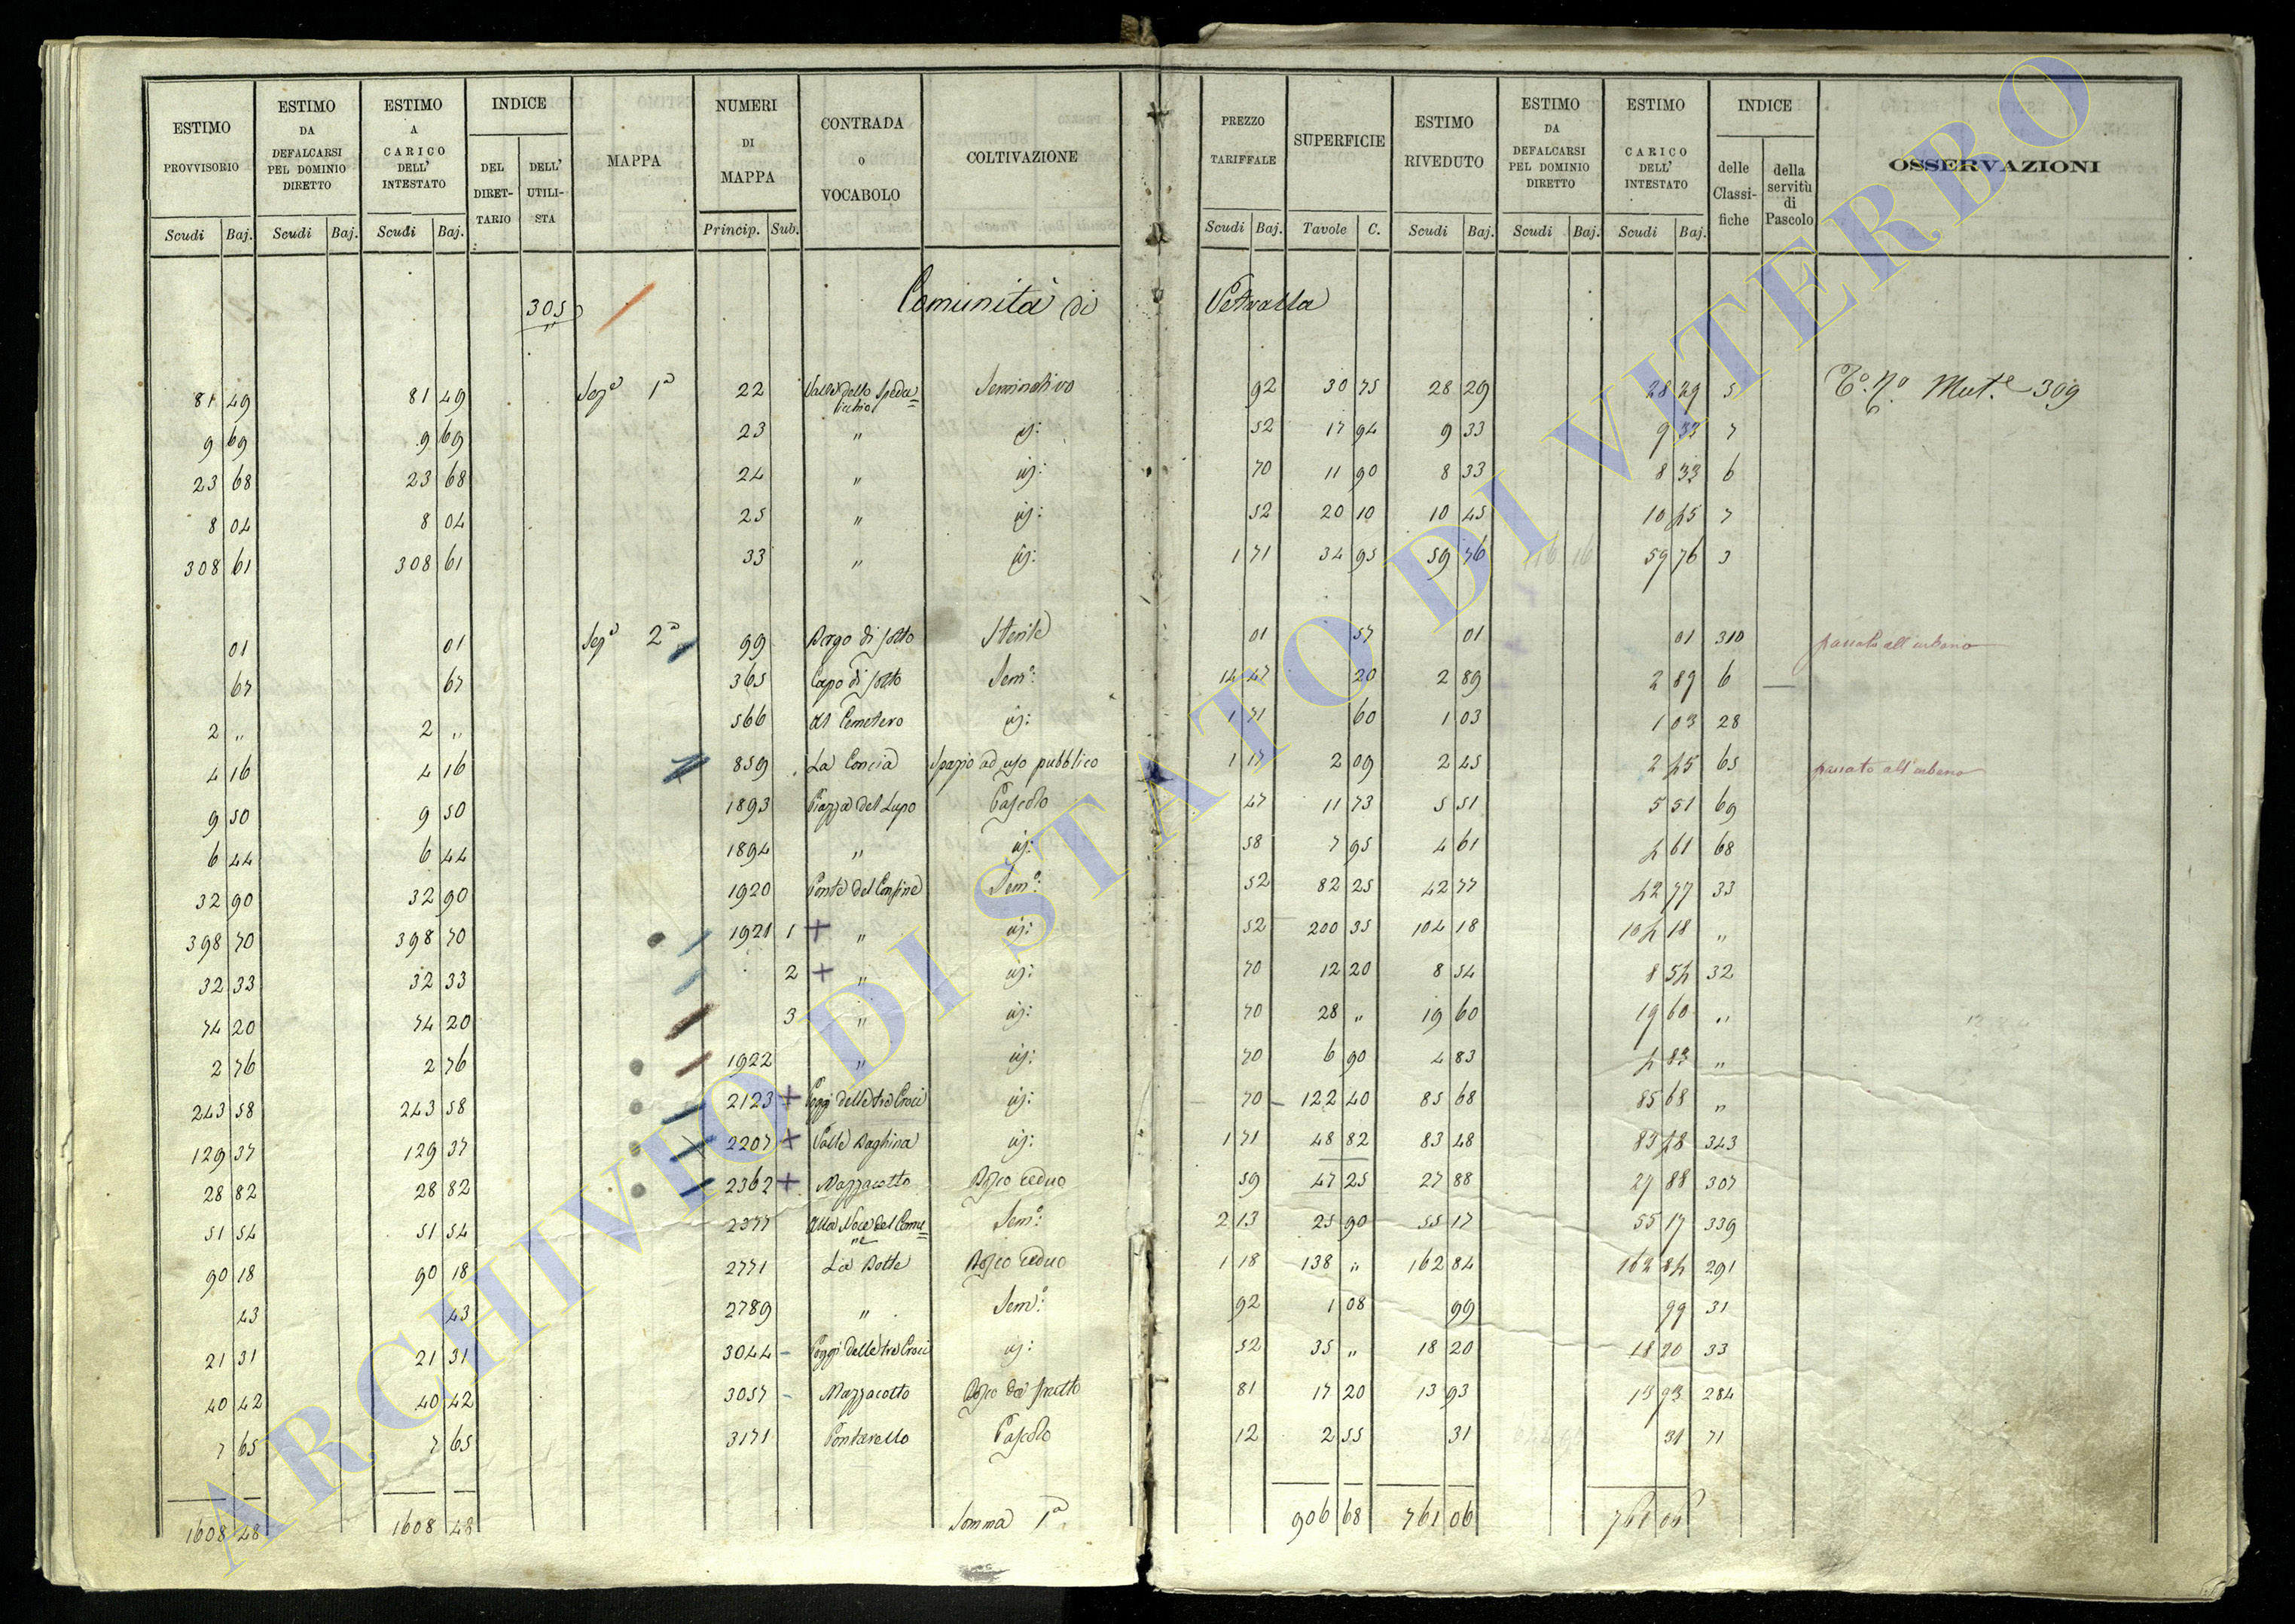 ESTIMO PROVVISORIO Scudi Baj. ESTIMO DA DEFALCARSI PEL DOMINIO DIRETTO Scudi Baj. ESTIMO A CARICO DELL' INTESTATO Scudi Baj. INDICE DEL DIRET-TARIO DELL' UTILI-STA MAPPA NUMERI DI MAPPA Princip. Sub. CONTRADA o VOCABOLO COLTIVAZIONE PREZZO TARIFFALE Scudi Baj. SUPERFICIE Tavole C. ESTIMO RIVEDUTO Scudi Baj. ESTIMO DA DEFALCARSI PEL DOMINIO DIRETTO Scudi Baj. ESTIMO A CARICO DELL' INTESTATO Scudi Baj. INDICE delle Classi-fiche della servitù di Pascolo OSSERVAZIONI
305 Comunità di Vetralla
81 49 81 49 Sezᵉ 1ª 22 Valle dello Speda=licchio Seminativo 92 30 75 28 29 28 29 5 Mutᵉ 309
9 69 9 69 23 " id: 52 17 94 9 33 9 33 7
23 68 23 68 24 " id: 70 11 90 8 33 8 33 6
8 04 8 04 25 " id: 52 20 10 10 45 10 45 7
308 61 308 61 33 " id: 1 71 34 95 59 76 59 76 3
01 01 Sezᵉ 2ª 99 Borgo di sotto Sterile 01 57 01 01 310 passato all'urbano
67 67 365 Capo di sotto Semº: 14 47 20 2 89 2 89 6
2 " 2 " 566 Al Cemetero id: 1 71 60 1 03 1 03 28
4 16 4 16 859 La Concia Spazio ad uso pubblico 1 17 2 09 2 45 2 45 65 passato all'urbano
9 50 9 50 1893 Piazza del Lupo Pascolo 47 11 73 5 51 5 51 69
6 44 6 44 1894 " id: 58 7 95 4 61 4 61 68
32 90 32 90 1920 Ponte del Confine Semº: 52 82 25 42 77 42 77 33
398 70 398 70 1921 1 + " id: 52 200 35 104 18 104 18 "
32 33 32 33 2 + " id: 70 12 20 8 54 8 54 32
74 20 74 20 3 " id: 70 28 " 19 60 19 60 "
2 76 2 76 1922 " id: 70 6 90 4 83 4 83 "
243 58 243 58 2123 + Poggi delle tre Croci id: 70 122 40 85 68 85 68 "
129 37 129 37 2207 + Valle Baghina id: 1 71 48 82 83 48 83 48 343
28 82 28 82 2362 + Mazzacotto Bosco ceduo 59 47 25 27 88 27 88 307
51 54 51 54 2377 Alla Noce del Comu=ne Semº: 2 13 25 90 55 17 55 17 339
90 18 90 18 2771 La Botte Bosco ceduo 1 18 138 " 162 84 162 84 291
43 43 2789 " Semº: 92 1 08 99 99 31
21 31 21 31 3044 Poggi delle tre Croci id: 52 35 " 18 20 18 20 33
40 42 40 42 3057 Mazzacotto Bosco da frutto 81 17 20 13 93 13 93 284
7 65 7 65 3171 Pontarello Pascolo 12 2 55 31 31 71
1608 48 1608 48 Somma 1ª 906 68 761 06 761 06
ARCHIVIO DI STATO DI VITERBO